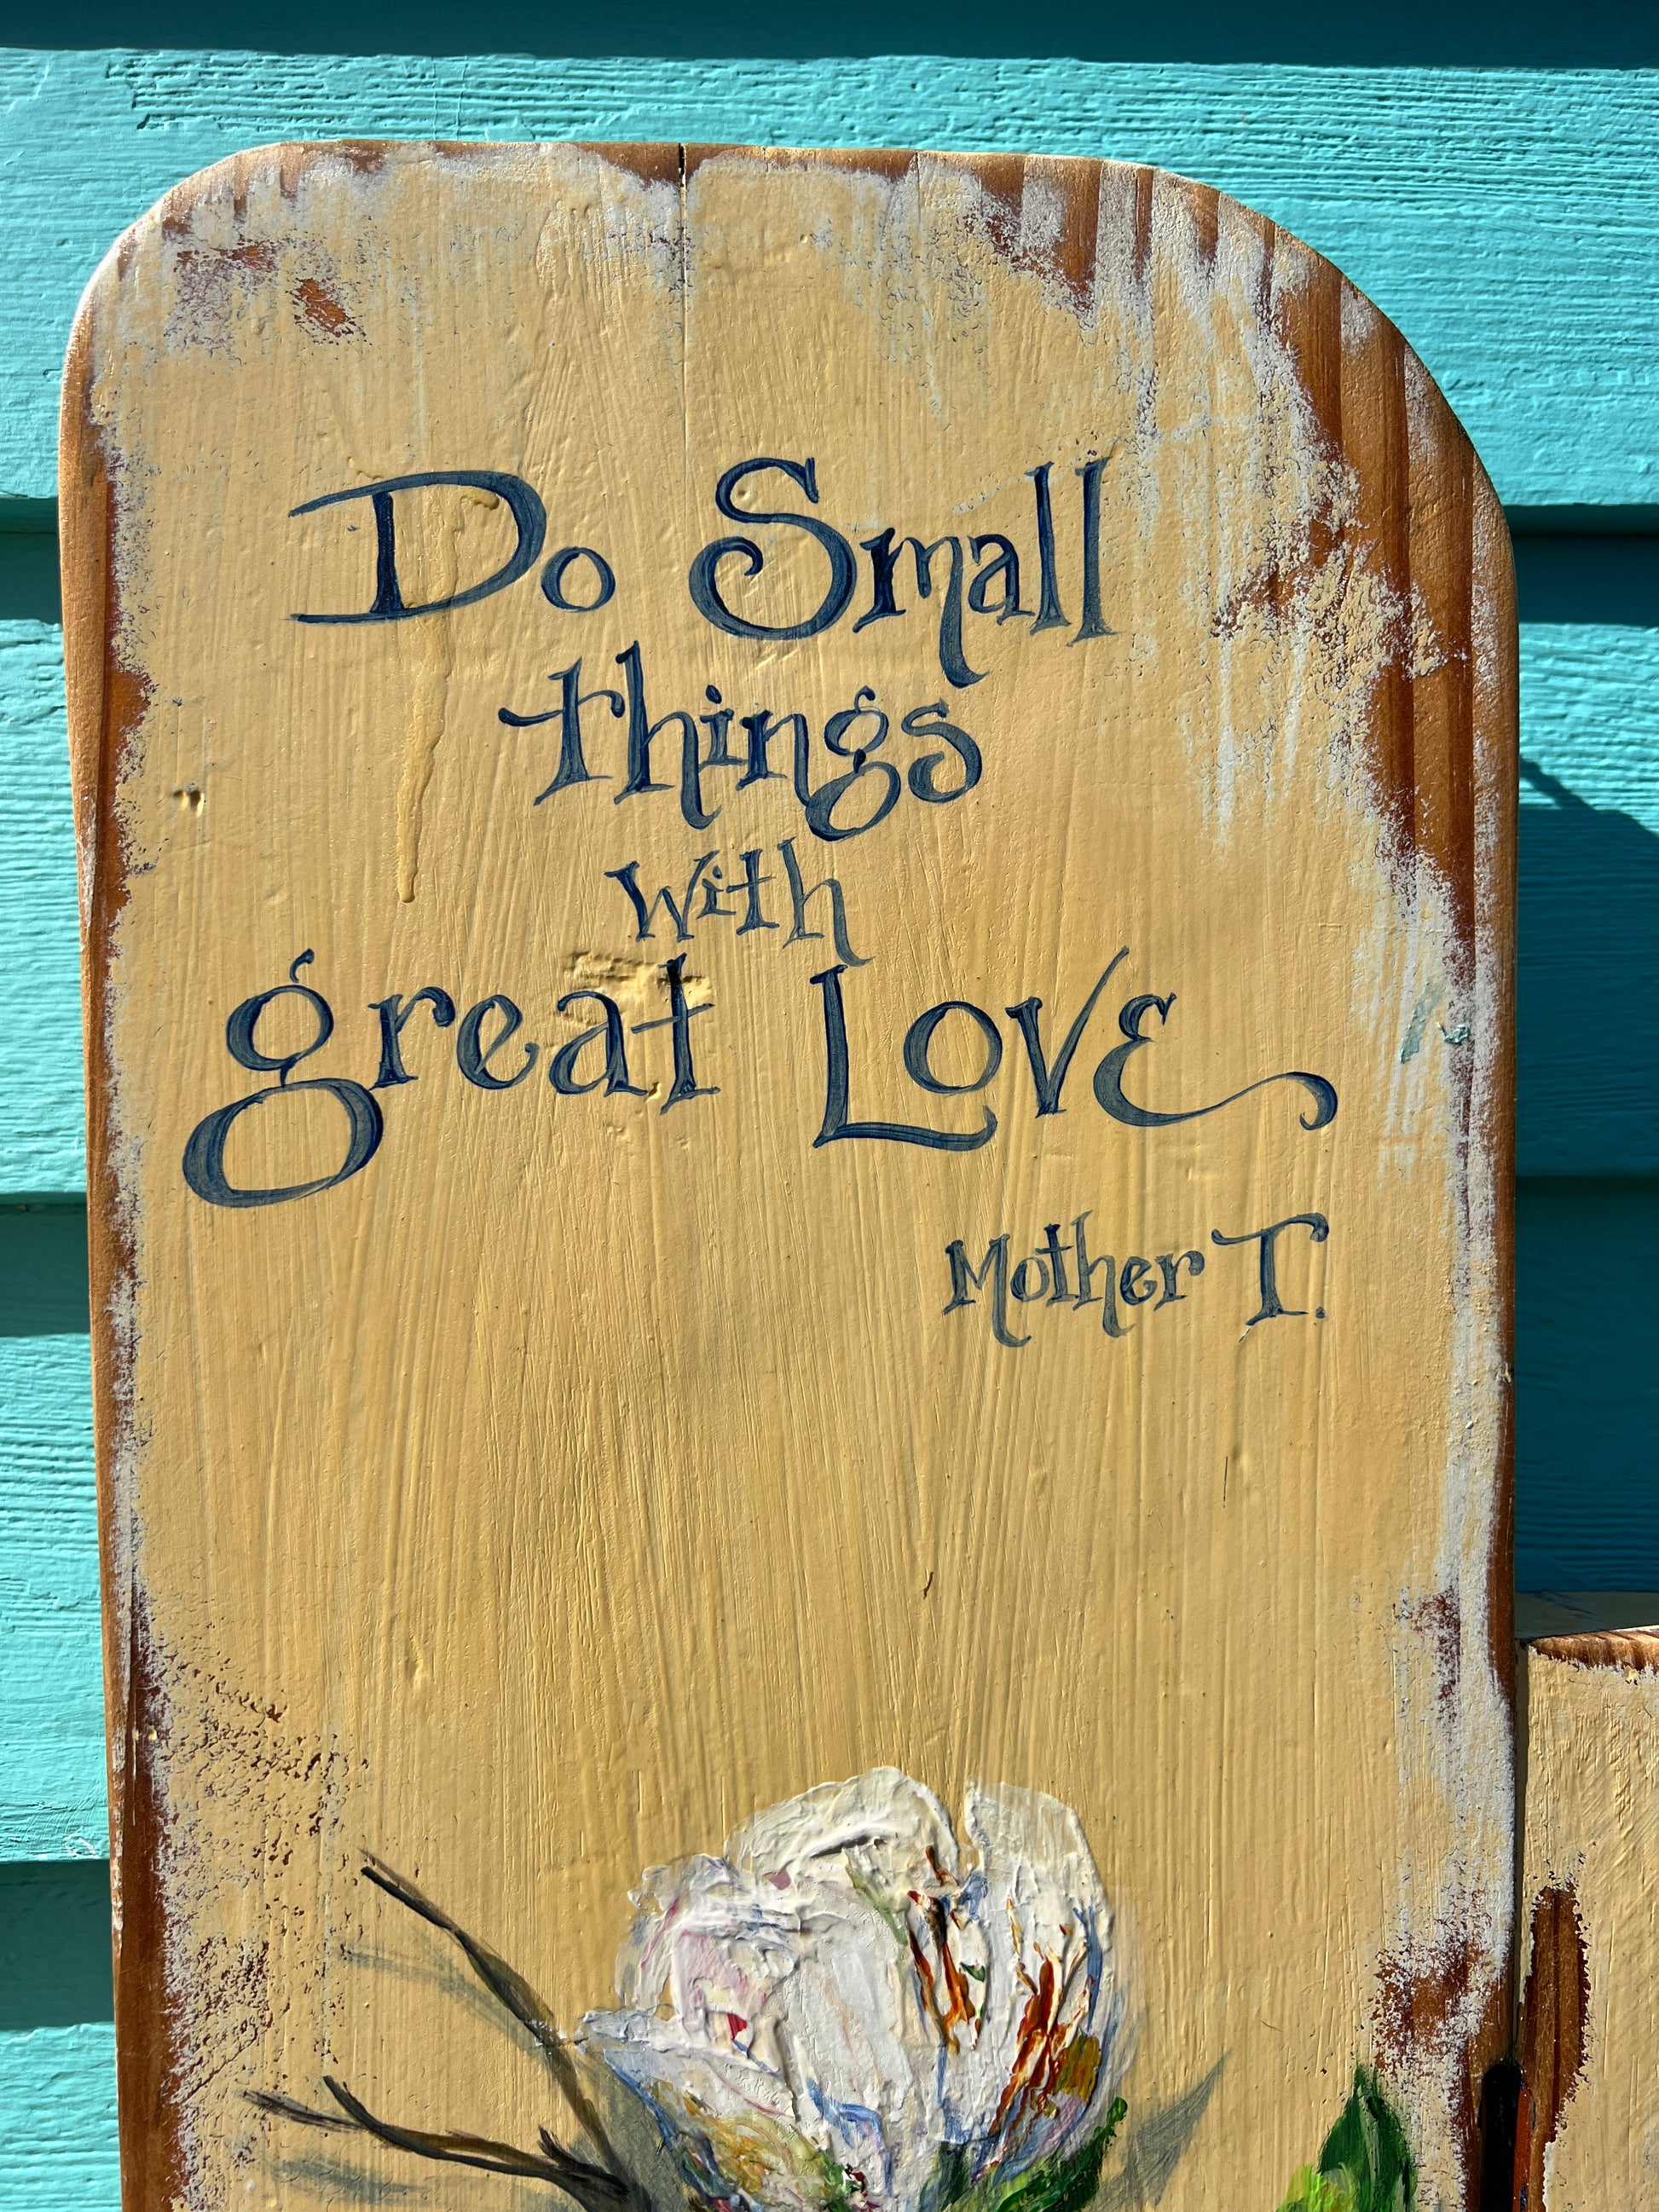 Do Small
things
with
great Love
Mother T.